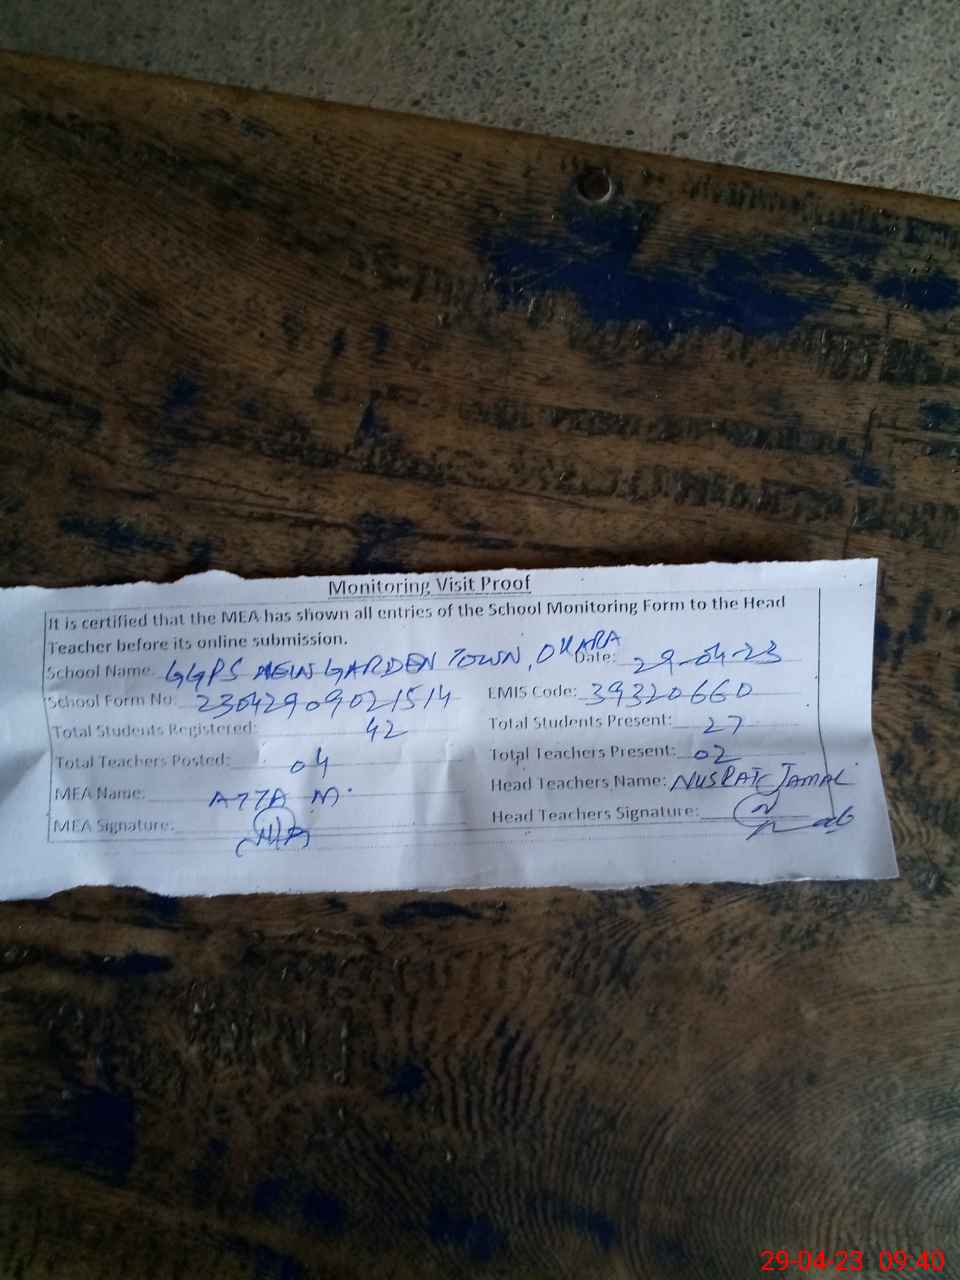 Monitoring Visit Proof
It is certified that the MEA has shown all entries of the School Monitoring Form to the Head
Teacher before its online submission.
School Name: GGPS NEW GARDEN TOWN, OKARA Date: 29-04-23
School Form No: 23042909021514 EMIS Code: 39320660
Total Students Registered: 42 Total Students Present: 27
Total Teachers Posted: 04 Total Teachers Present: 02
MEA Name: ATTA M. Head Teachers Name: NUSRAT JAMAL
MEA Signature: Head Teachers Signature:
29-04-23 09:40